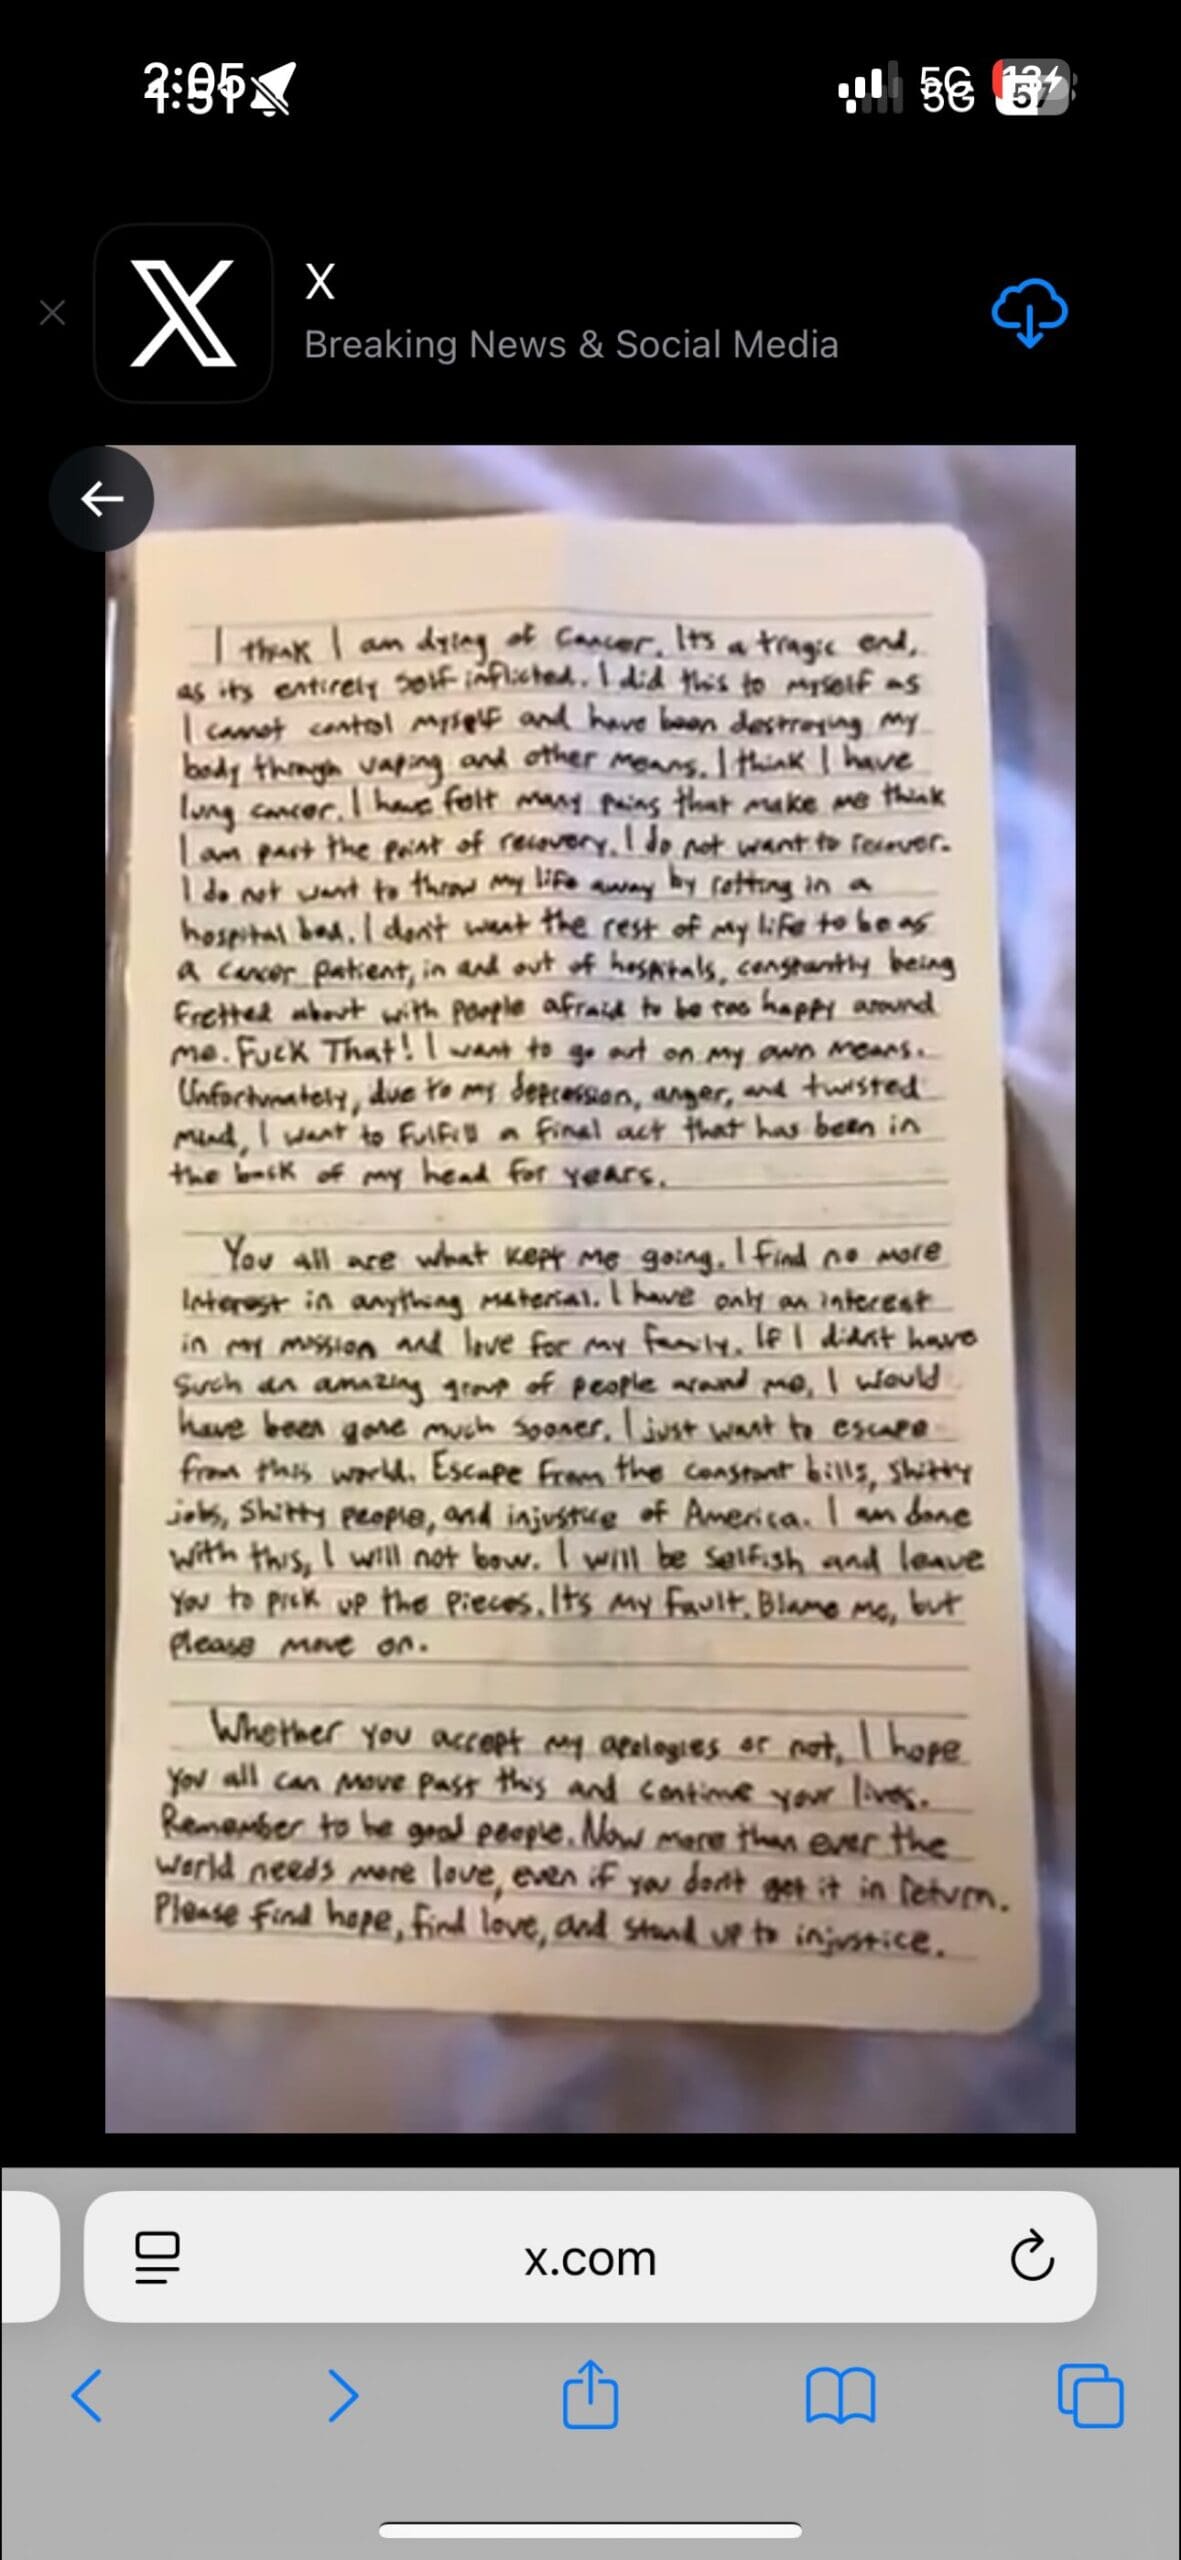 X
Breaking News & Social Media
I think I am dying of Cancer. Its a tragic end,
as its entirely self inflicted. I did this to myself as
I cannot control myself and have been destroying my
body through vaping and other means. I think I have
lung cancer. I have felt many pains that make me think
I am past the point of recovery. I do not want to recover.
I do not want to throw my life away by rotting in a
hospital bed. I don't want the rest of my life to be as
a cancer patient, in and out of hospitals, constantly being
fretted about with people afraid to be too happy around
me. Fuck That! I want to go out on my own means.
Unfortunately, due to my depression, anger, and twisted
mind, I want to fulfill a final act that has been in
the back of my head for years.
You all are what kept me going. I find no more
Interest in anything material. I have only an interest
in my mission and love for my family. If I didn't have
such an amazing group of people around me, I would
have been gone much sooner. I just want to escape
from this world. Escape from the constant bills, shitty
jobs, shitty people, and injustice of America. I am done
with this, I will not bow. I will be selfish and leave
you to pick up the pieces. It's my fault. Blame me, but
please move on.
Whether you accept my apologies or not, I hope
you all can move past this and continue your lives.
Remember to be good people. Now more than ever the
world needs more love, even if you don't get it in return.
Please find hope, find love, and stand up to injustice.
x.com